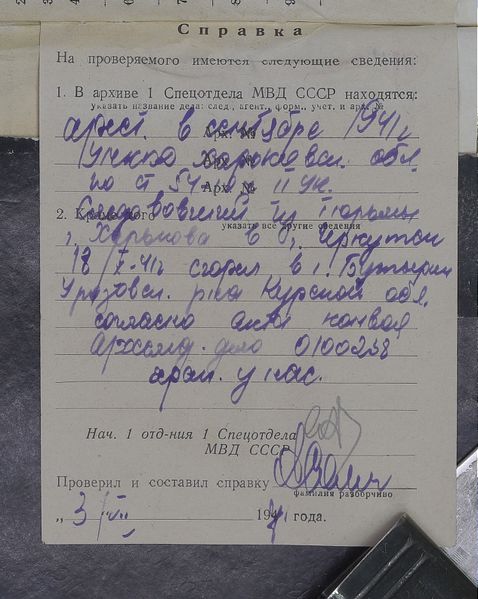 Справка
На проверяемого имеются следующие сведения:
1. В архиве 1 Спецотдела МВД СССР находятся:
указать название дела: след., агент., форм., учет. и арх. №
арест. в сентябре 1941 г.
Арх. №
Харьковск. обл.
Арх. №
по ст 54
Арх. №
2. Кроме того
Следовавший из тюрьмы
указать все другие сведения
г. Харькова в г. Иркутск
18/X-41г сгорел в
Уразовск. р-на Курской обл.
согласно акта конвоя
дело 0100258
хран. у нас.
Нач. 1 отд-ния 1 Спецотдела
МВД СССР
Проверил и составил справку
фамилия разборчиво
„ 3 / 194 года.